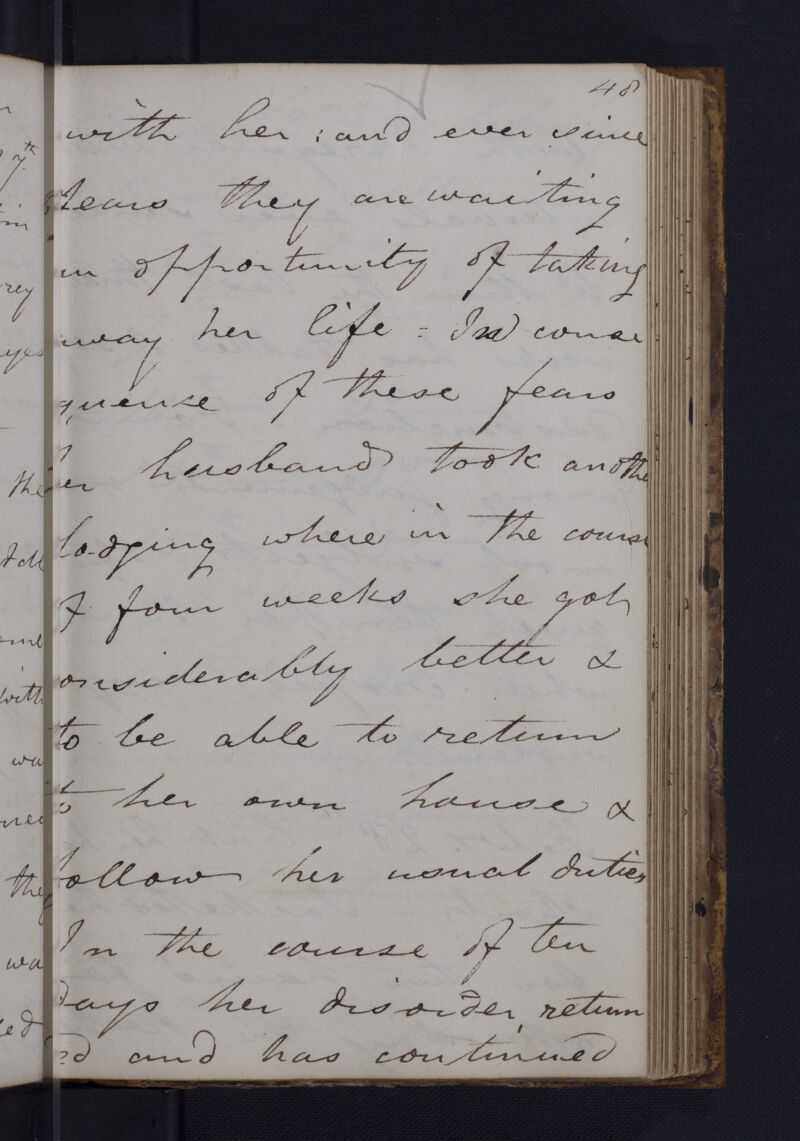 48
with her : and ever since
fears they are waiting
an opportunity of taking
away her life = In conse
quense of these fears
her husband took another
lodging where in the course
of four weeks she got
considerably better &
to be able to return
to her own house &
follow her usual duties
In the course of ten
days her disorder return
ed and has continued